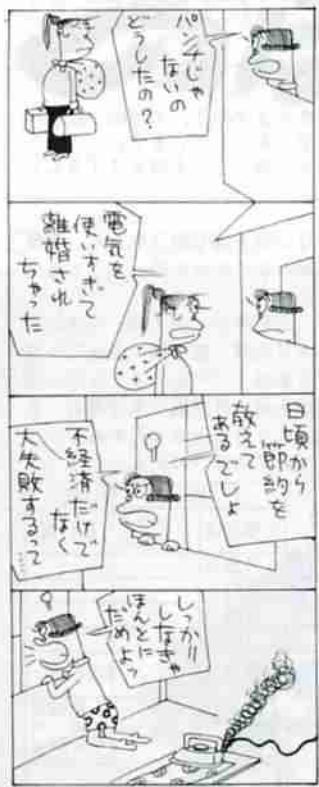 パンチじゃ
ないの
どうしたの？
電気を
使いすぎて
離婚され
ちゃった
日頃から
節約を
教えて
あるでしょ
不経済だけで
なく
大失敗するって…
しっかり
しなきゃ
ほんとに
だめよっ